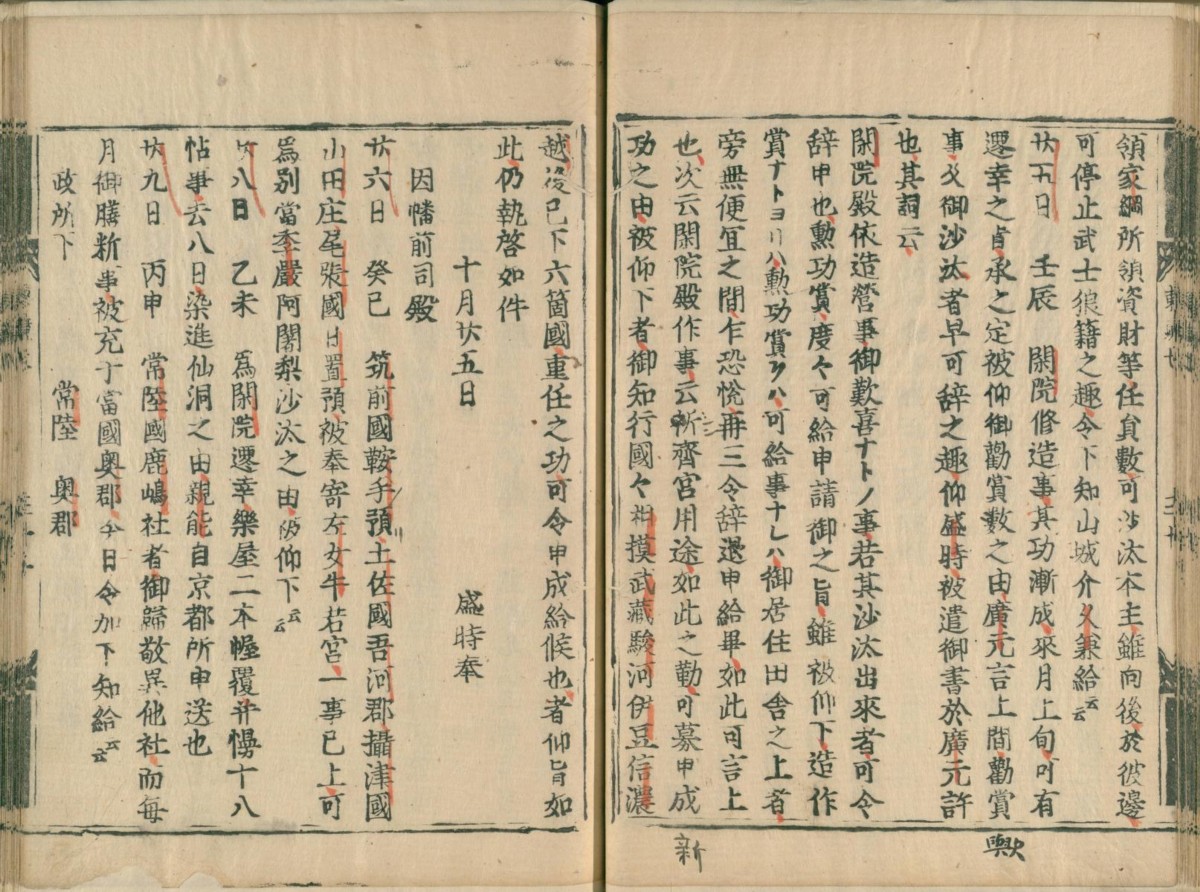 領家綱所領資財等任負數可沙汰本主雖向後於彼邊
可停止武士狼藉之趣令下知山城介久兼給云云
廿五日 壬辰 閑院修造事其功漸成來月上旬可有
遷幸之旨承之定被仰御勸賞歟之由廣元言上間勸賞
事又御沙汰者早可辞之趣仰盛時被遣御書於廣元許
也其詞云
閑院殿依造營事御歎喜ナトノ事若其沙汰出來者可令
辞申也勲功賞度々可給申請御之旨雖被仰下造作
賞ナトヨリハ勲功賞ヲハ可給事ナレハ御居住田舎之上者
旁無便冝之間乍恐悦再三令辞退申給畢如此可言上
也次云閑院殿作事云斫齊宮用途如此之勤可募申成
功之由被仰下者御知行國々相摸武藏駿河伊豆信濃
歟
新
越後已下六箇國重任之功可令申成給候也者仰旨如
此仍執啓如件
十月廿五日 盛時奉
因幡前司殿
廿六日 癸巳 筑前國鞍手預土佐國吾河郡攝津國
山田庄尾張國日置預被奉寄左女牛若宮一事已上可
爲別當季嚴阿闍梨沙汰之由被仰下云云
廿八日 乙未 爲閑院遷幸樂屋二本幄覆并幔十八
帖事去八日染進仙洞之由親能自京都所申送也
廿九日 丙申 常陸國鹿嶋社者御歸敬異他社而毎
月御膳斫事被充于當國奥郡今日令加下知給云云
政所下 常陸 奥郡